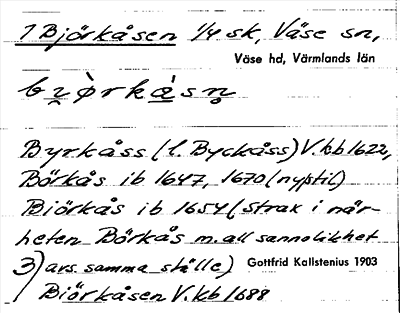 1 Björkåsen 1/4 sk, Väse sn,
Väse hd, Värmlands län
Byrkåss (l. Byckåss) V.kb 1622,
Börkås ib 1647, 1670 (nyptil)
Biörkås ib 1654 (strax i när-
heten Börkås m. all sannolikhet
3) avs. samma ställe) Gottfrid Kallstenius 1903
Biörkåsen V.kb 1688